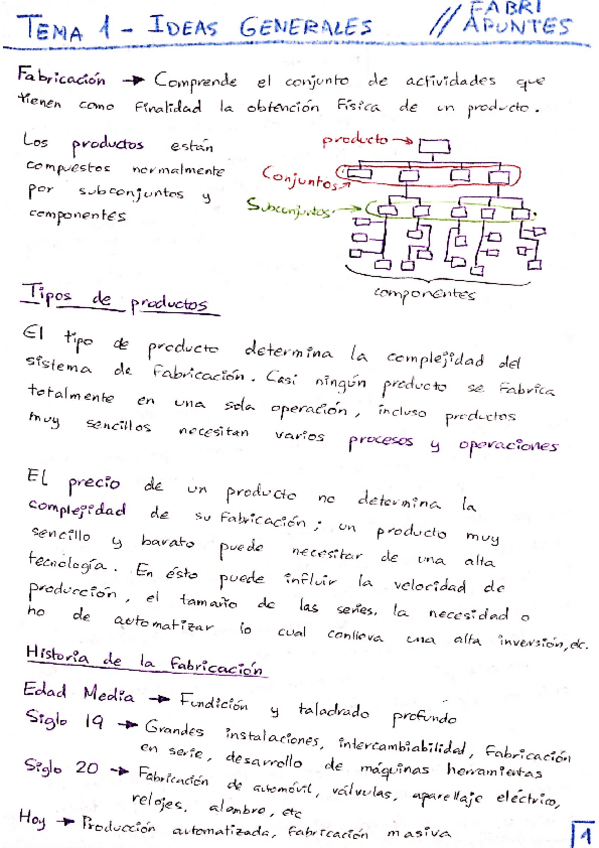 TEMA 1 - IDEAS GENERALES // FABRI APUNTES
Fabricación → Comprende el conjunto de actividades que
tienen como finalidad la obtención física de un producto.
Los productos están
compuestos normalmente
por subconjuntos y
componentes
producto →
Conjuntos →
Subconjuntos →
componentes
Tipos de productos
El tipo de producto determina la complejidad del
sistema de fabricación. Casi ningún producto se fabrica
totalmente en una sola operación, incluso productos
muy sencillos necesitan varios procesos y operaciones
El precio de un producto no determina la
complejidad de su fabricación; un producto muy
sencillo y barato puede necesitar de una alta
tecnología. En ésto puede influir la velocidad de
producción, el tamaño de las series, la necesidad o
no de automatizar lo cual conlleva una alta inversión, etc.
Historia de la fabricación
Edad Media → Fundición y taladrado profundo
Siglo 19 → Grandes instalaciones, intercambiabilidad, fabricación
en serie, desarrollo de máquinas herramientas
Siglo 20 → Fabricación de automóvil, válvulas, aparellaje eléctrico,
relojes, alambro, etc
Hoy → Producción automatizada, fabricación masiva
1